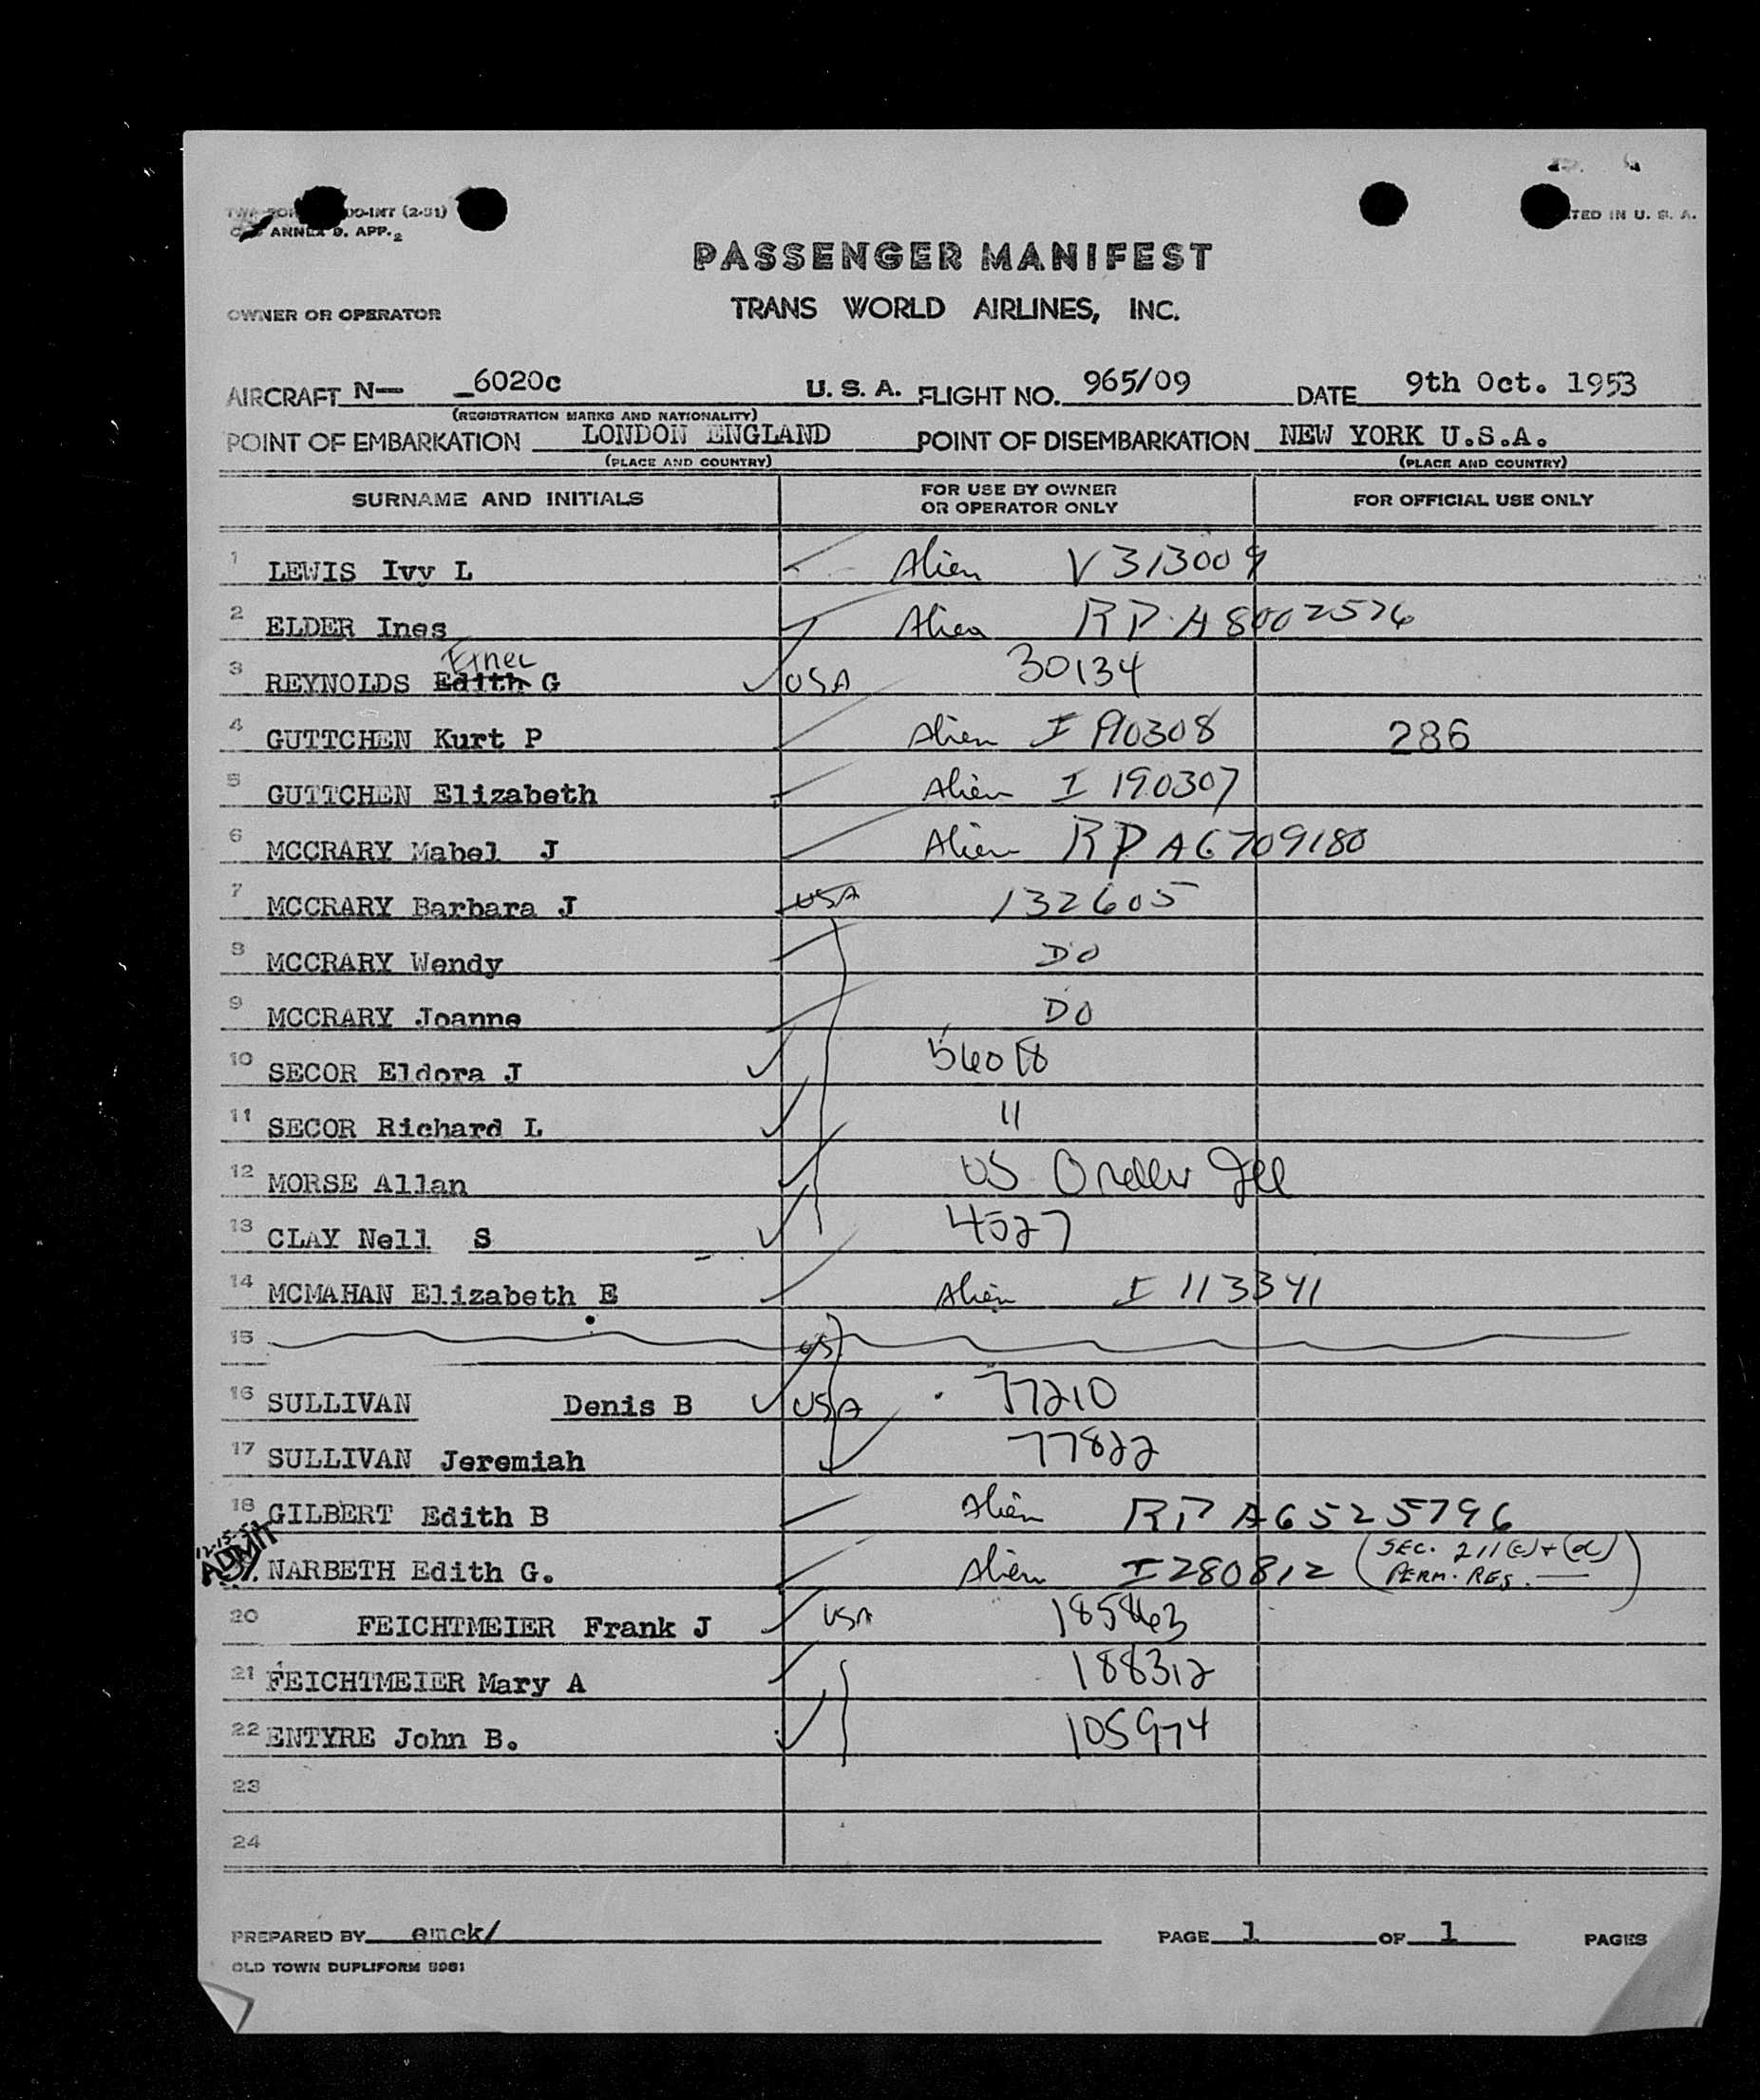 ANNEX 9. APP. 2
TED IN U. S. A.
PASSENGER MANIFEST
OWNER OR OPERATOR TRANS WORLD AIRLINES, INC.
AIRCRAFT N— 6020c U. S. A. FLIGHT NO. 965/09 DATE 9th Oct. 1953
(REGISTRATION MARKS AND NATIONALITY)
POINT OF EMBARKATION LONDON ENGLAND POINT OF DISEMBARKATION NEW YORK U.S.A.
(PLACE AND COUNTRY) (PLACE AND COUNTRY)
SURNAME AND INITIALS FOR USE BY OWNER OR OPERATOR ONLY FOR OFFICIAL USE ONLY
1 LEWIS Ivy L Alien V 313009
2 ELDER Ines Alien RP A8002576
3 REYNOLDS Edith G USA 30134
4 GUTTCHEN Kurt P Alien I 190308 286
5 GUTTCHEN Elizabeth Alien I 190307
6 MCCRARY Mabel J Alien RP A6709180
7 MCCRARY Barbara J USA 132605
8 MCCRARY Wendy DO
9 MCCRARY Joanne DO
10 SECOR Eldora J 56018
11 SECOR Richard L 11
12 MORSE Allan US
13 CLAY Nell S 4527
14 MCMAHAN Elizabeth E Alien I 113341
15
16 SULLIVAN Denis B USA 77210
17 SULLIVAN Jeremiah 77822
18 GILBERT Edith B Alien RP A6525796
ADMIT NARBETH Edith G. Alien I280812 (SEC. 211(c)+(d)
PERM. RES. —)
20 FEICHTMEIER Frank J USA 185863
21 FEICHTMEIER Mary A 188312
22 ENTYRE John B. 105974
23
24
PREPARED BY emck/ PAGE 1 OF 1 PAGES
OLD TOWN DUPLIFORM 5981